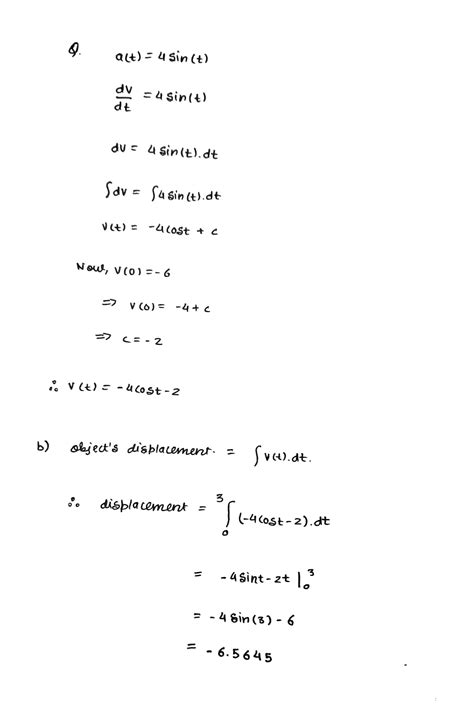 Q. a(t) = 4 sin(t)
dv/dt = 4 sin(t)
dv = 4 sin(t).dt
∫dv = ∫4 sin(t).dt
v(t) = -4cost + c
Now, v(0) = -6
⇒ v(0) = -4 + c
⇒ c = -2
∴ v(t) = -4cost - 2
b) object's displacement. = ∫ v(t).dt.
∴ displacement = ∫₀³ (-4cost - 2).dt
= -4 sint - 2t |₀³
= -4 sin(3) - 6
= -6.5645